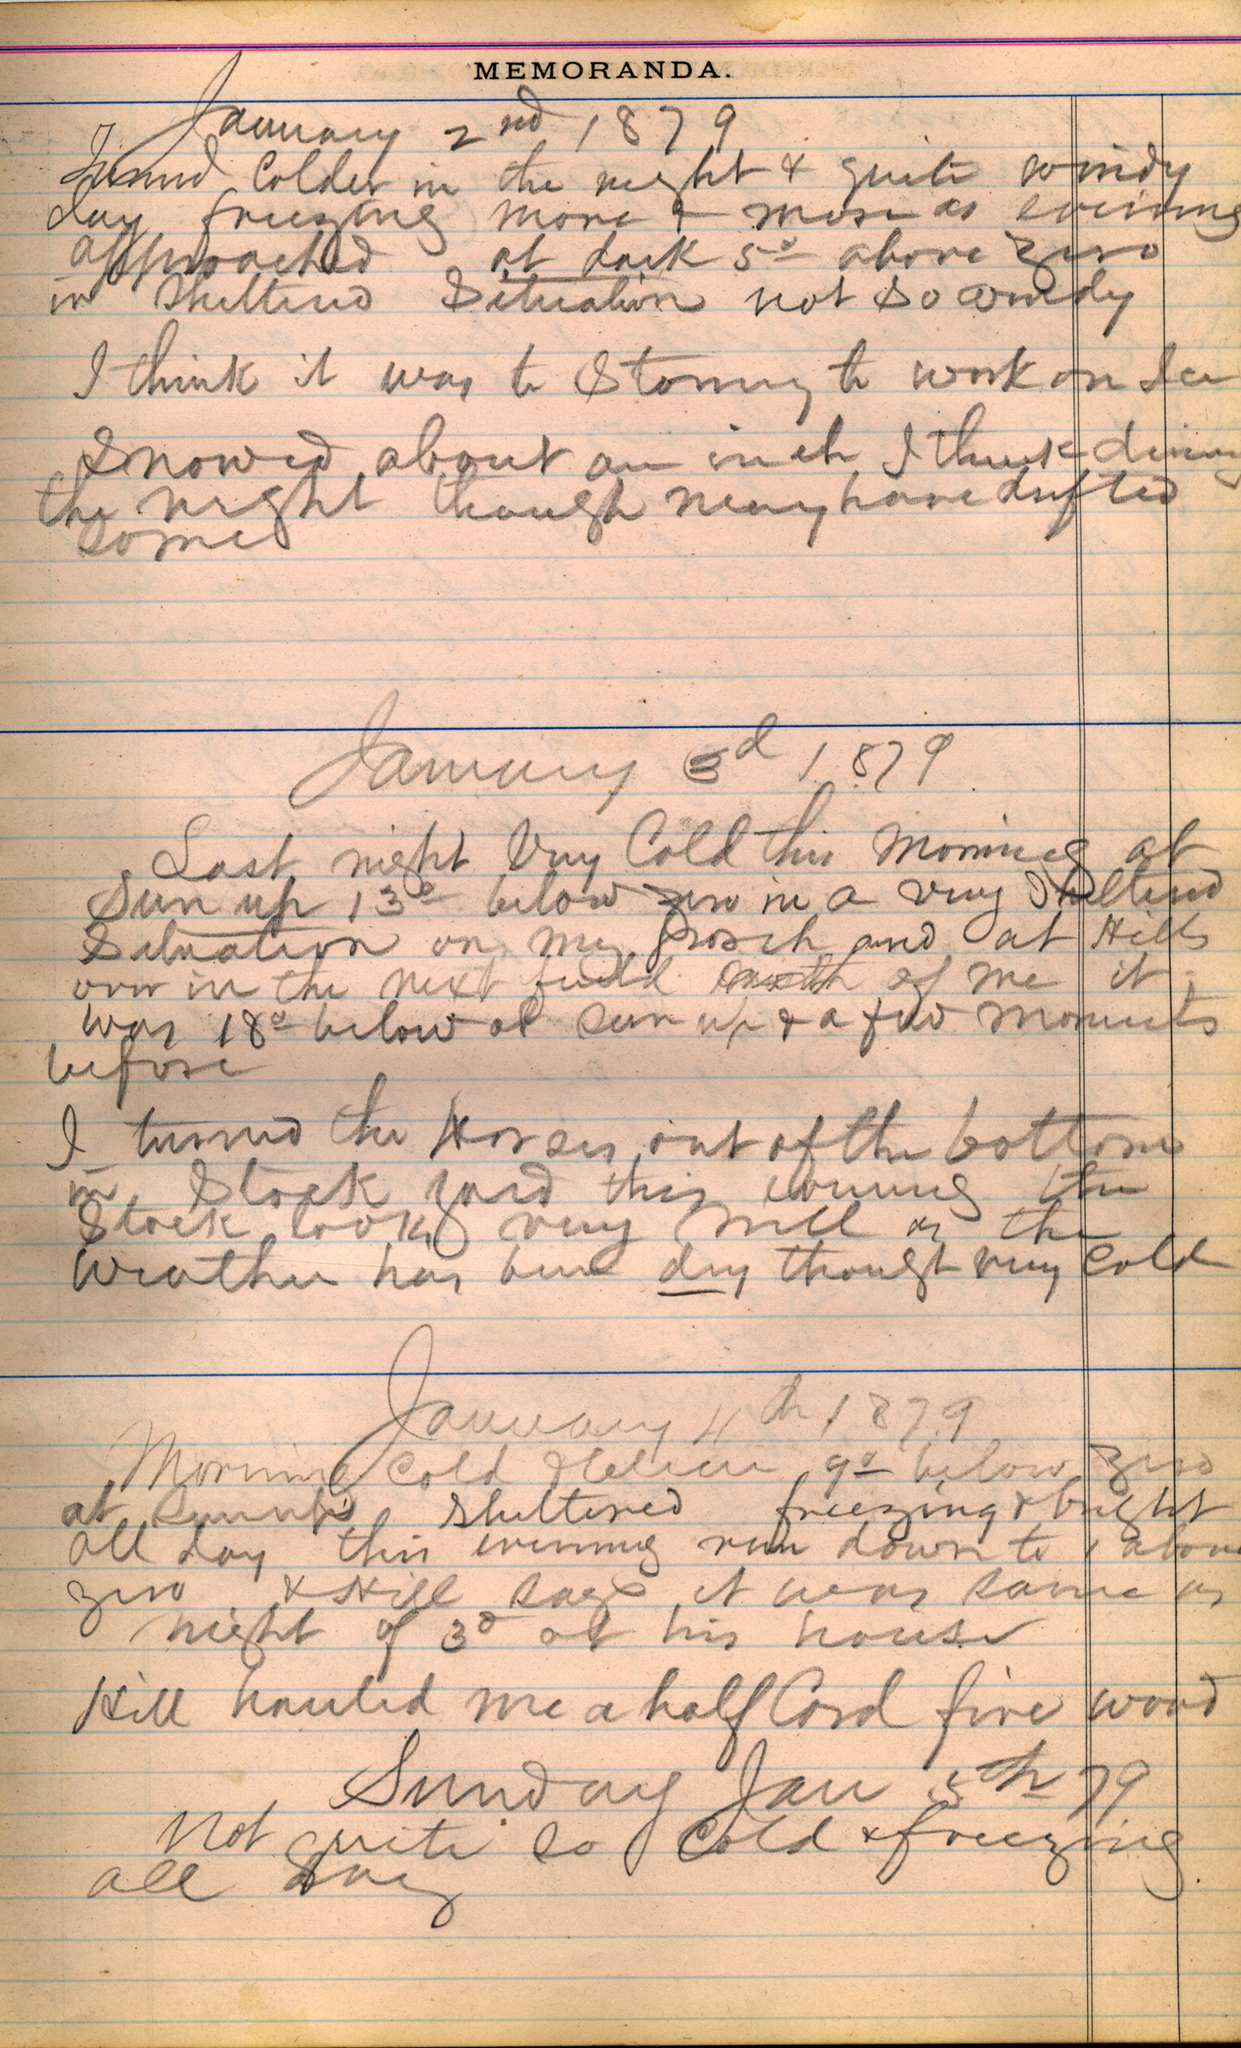 MEMORANDA.
January 2nd 1879
Turned Colder in the night & quite windy
day freezing more & more as evening
approached at dark 5° above zero
in Sheltered Situation not so windy
I think it was to Stormy to work on Ice
Snowed about an inch I think during
the night though may have drifted
some
January 3d 1879
Last night Very Cold this Morning at
Sun up 13° below zero in a very Sheltered
Situation on my porch and at Hills
over in the next field of me it
was 18° below at Sun up & a few Moments
before
I turned the Horses out of the bottom
in Stock yard this evening the
Stock looks very well as the
weather has been dry though very Cold
January 4th 1879
Morning Cold 9° below zero
at Sunup Sheltered freezing & bright
all day this evening run down to 1 above
zero & Hill says it was same as
night of 3d at his house
Hill hauled me a half Cord fire wood
Sunday Jan 5th 79
Not quite so Cold & freezing
all day